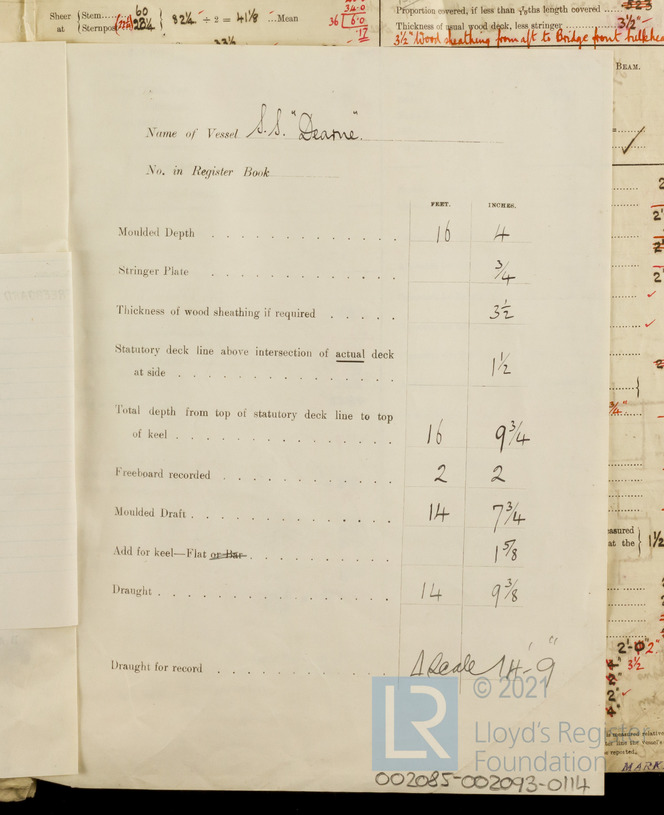 Sheer at { Stem.... 60
Sternpost 28¼ } 82¼ ÷ 2 = 41⅛ ...Mean
34.0
36 6.0
.17
Proportion covered, if less than ths length covered .523
Thickness of usual wood deck, less stringer 3½"
3½" Wood sheathing from aft to Bridge front bulkhea
BEAM.
Name of Vessel S.S. "Dearne"
No. in Register Book
FEET. INCHES.
Moulded Depth 16 4
Stringer Plate ¾
Thickness of wood sheathing if required 3½
Statutory deck line above intersection of actual deck
at side 1½
Total depth from top of statutory deck line to top
of keel 16 9¾
Freeboard recorded 2 2
Moulded Draft 14 7¾
Add for keel—Flat or Bar 1⅝
Draught 14 9⅜
Draught for record 14'-9"
easured
at the } 1½
2'-0" 2"
3½
is measured relative
MARK
LR
© 2021
Lloyd's Register
Foundation
002085-002093-0114